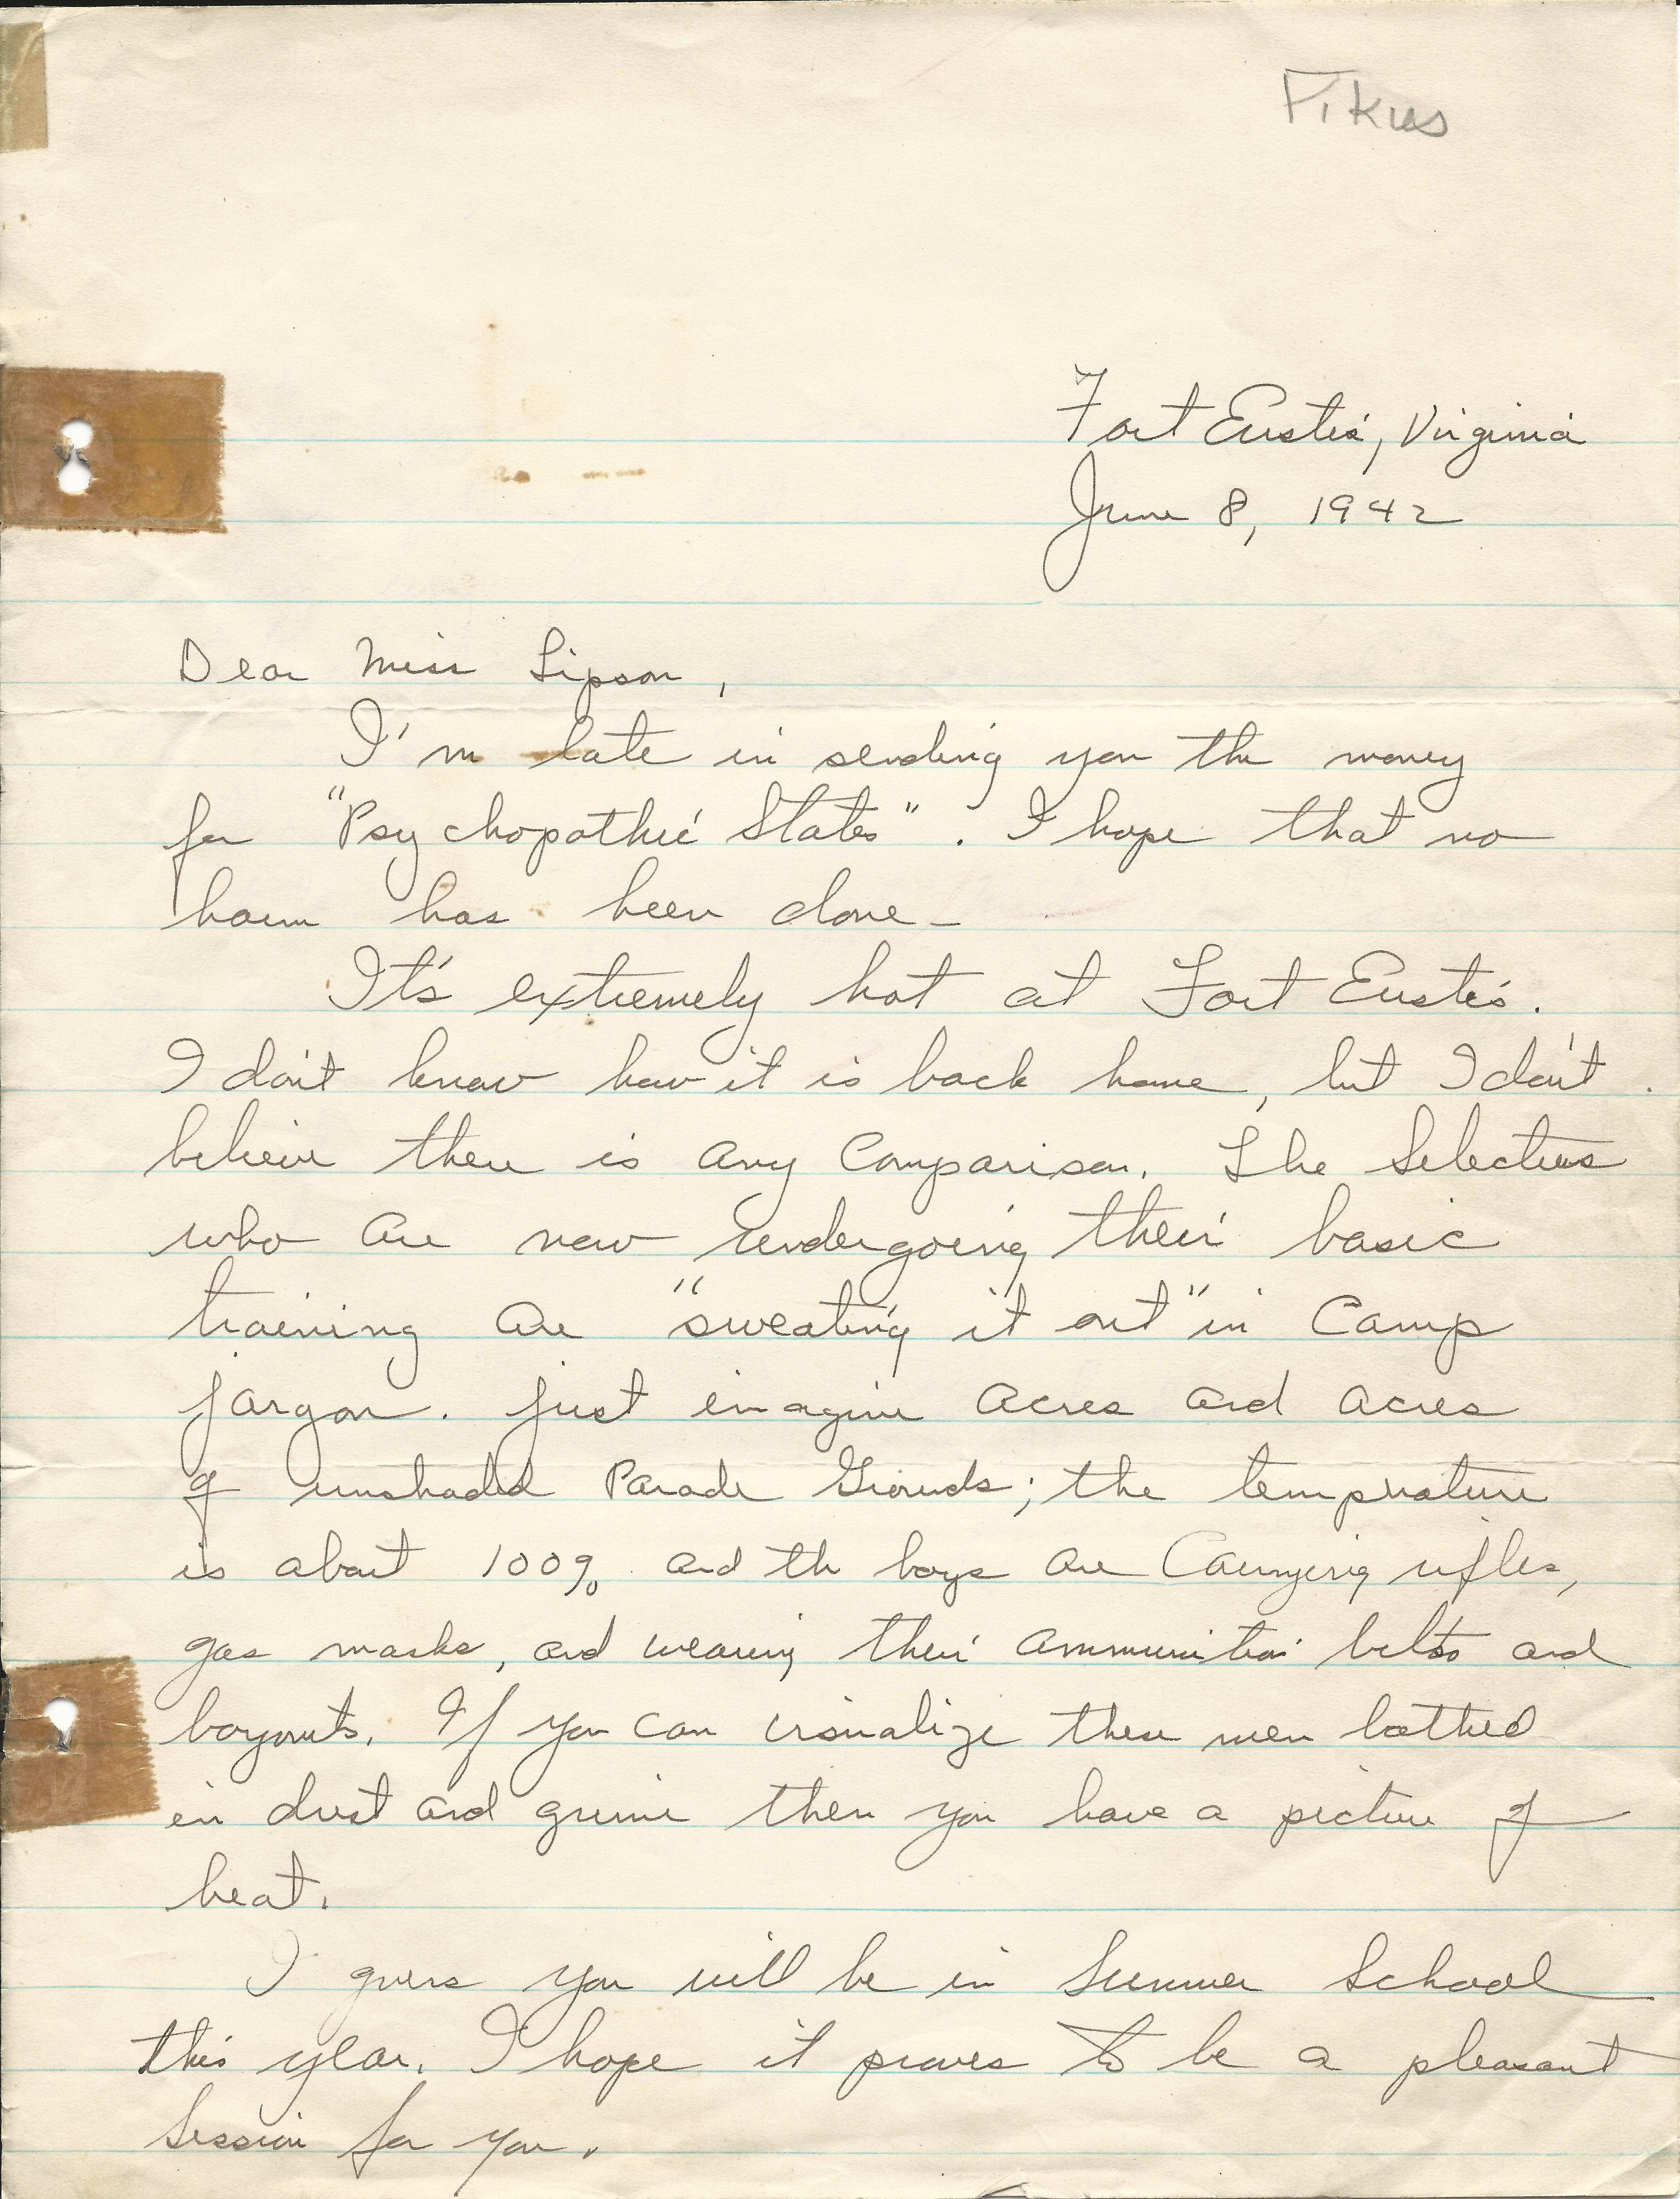 Pikus
Fort Eustis, Virginia
June 8, 1942
Dear Miss Lipson,
I'm late in sending you the money
for "Psychopathic States". I hope that no
harm has been done-
It's extremely hot at Fort Eustis.
I don't know how it is back home, but I don't
believe there is any Comparison. The Selectees
who are now undergoing their basic
training are "sweating it out" in Camp
jargon. Just imagine acres and acres
of unshaded Parade Grounds; the temprature
is about 100% and the boys are Carrying rifles,
gas masks, and wearing their ammunition belts and
bayonets. If you can visualize these men bathed
in dust and grime then you have a picture of
heat.
I guess you will be in Summer School
this year. I hope it proves to be a pleasant
Session for you.